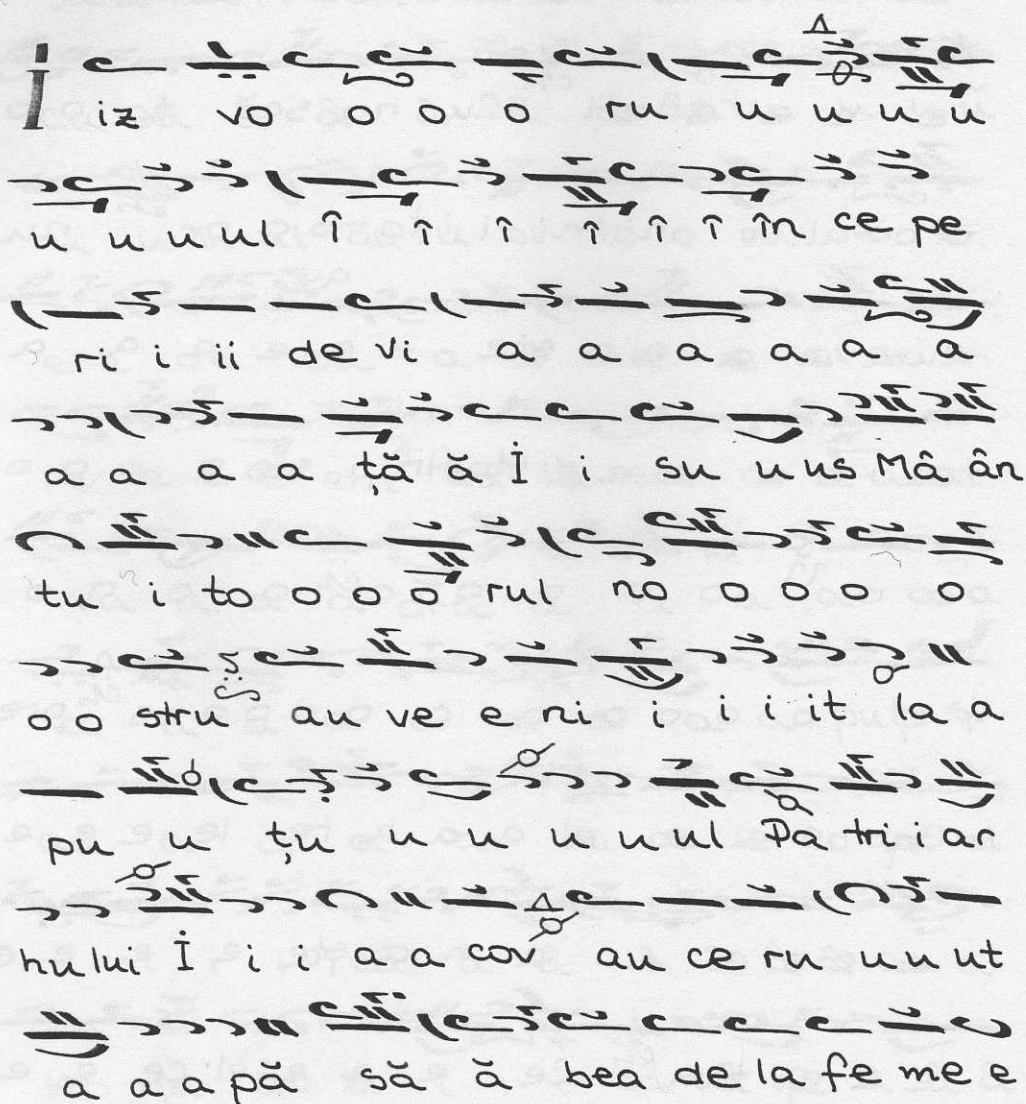 I iz vo o o o ru u u u u
u u u ul î î î î î în ce pe
ri i ii de vi a a a a a a
a a a a ță ă İ i su u us Mâ ân
tu i to o o o rul no o o o o
o o stru au ve e ni i i i it la a
pu u țu u u u u ul Pa tri i ar
hu lui İ i i a a cov au ce ru u u ut
a a a pă să ă bea de la fe me e